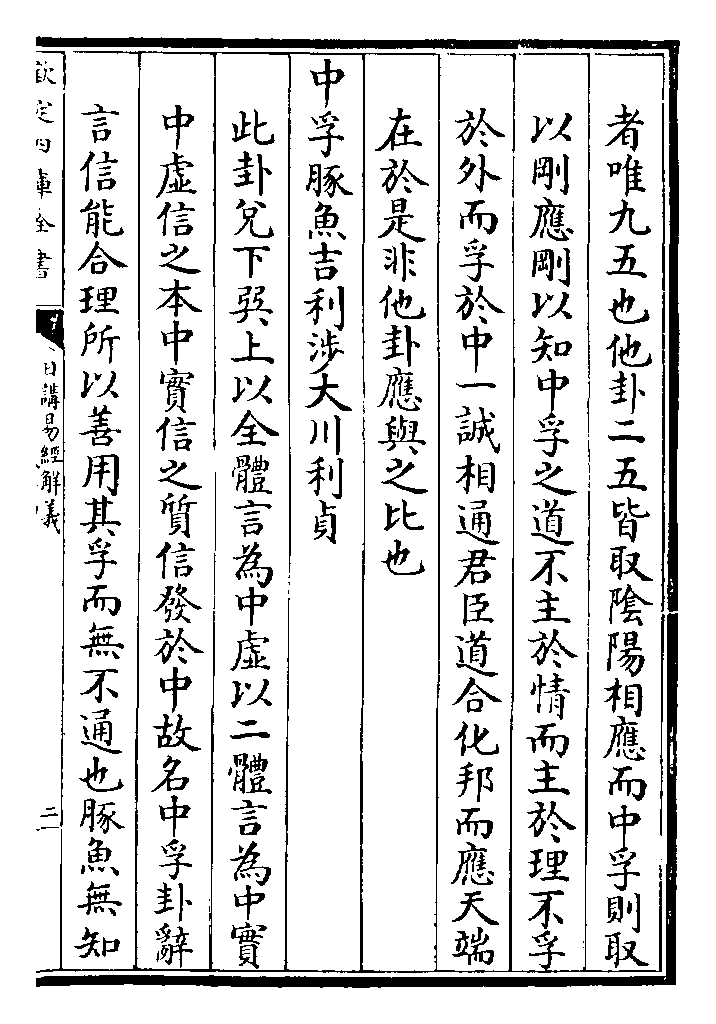 者唯九五也他卦二五皆取陰陽相應而中孚則取
以剛應剛以知中孚之道不主於情而主於理不孚
於外而孚於中一誠相通君臣道合化邦而應天端
在於是非他卦應與之比也
中孚豚魚吉利涉大川利貞
此卦兌下巽上以全體言為中虛以二體言為中實
中虛信之本中實信之質信發於中故名中孚卦辭
言信能合理所以善用其孚而無不通也豚魚無知
欽定四庫全書
日講易經解義
二